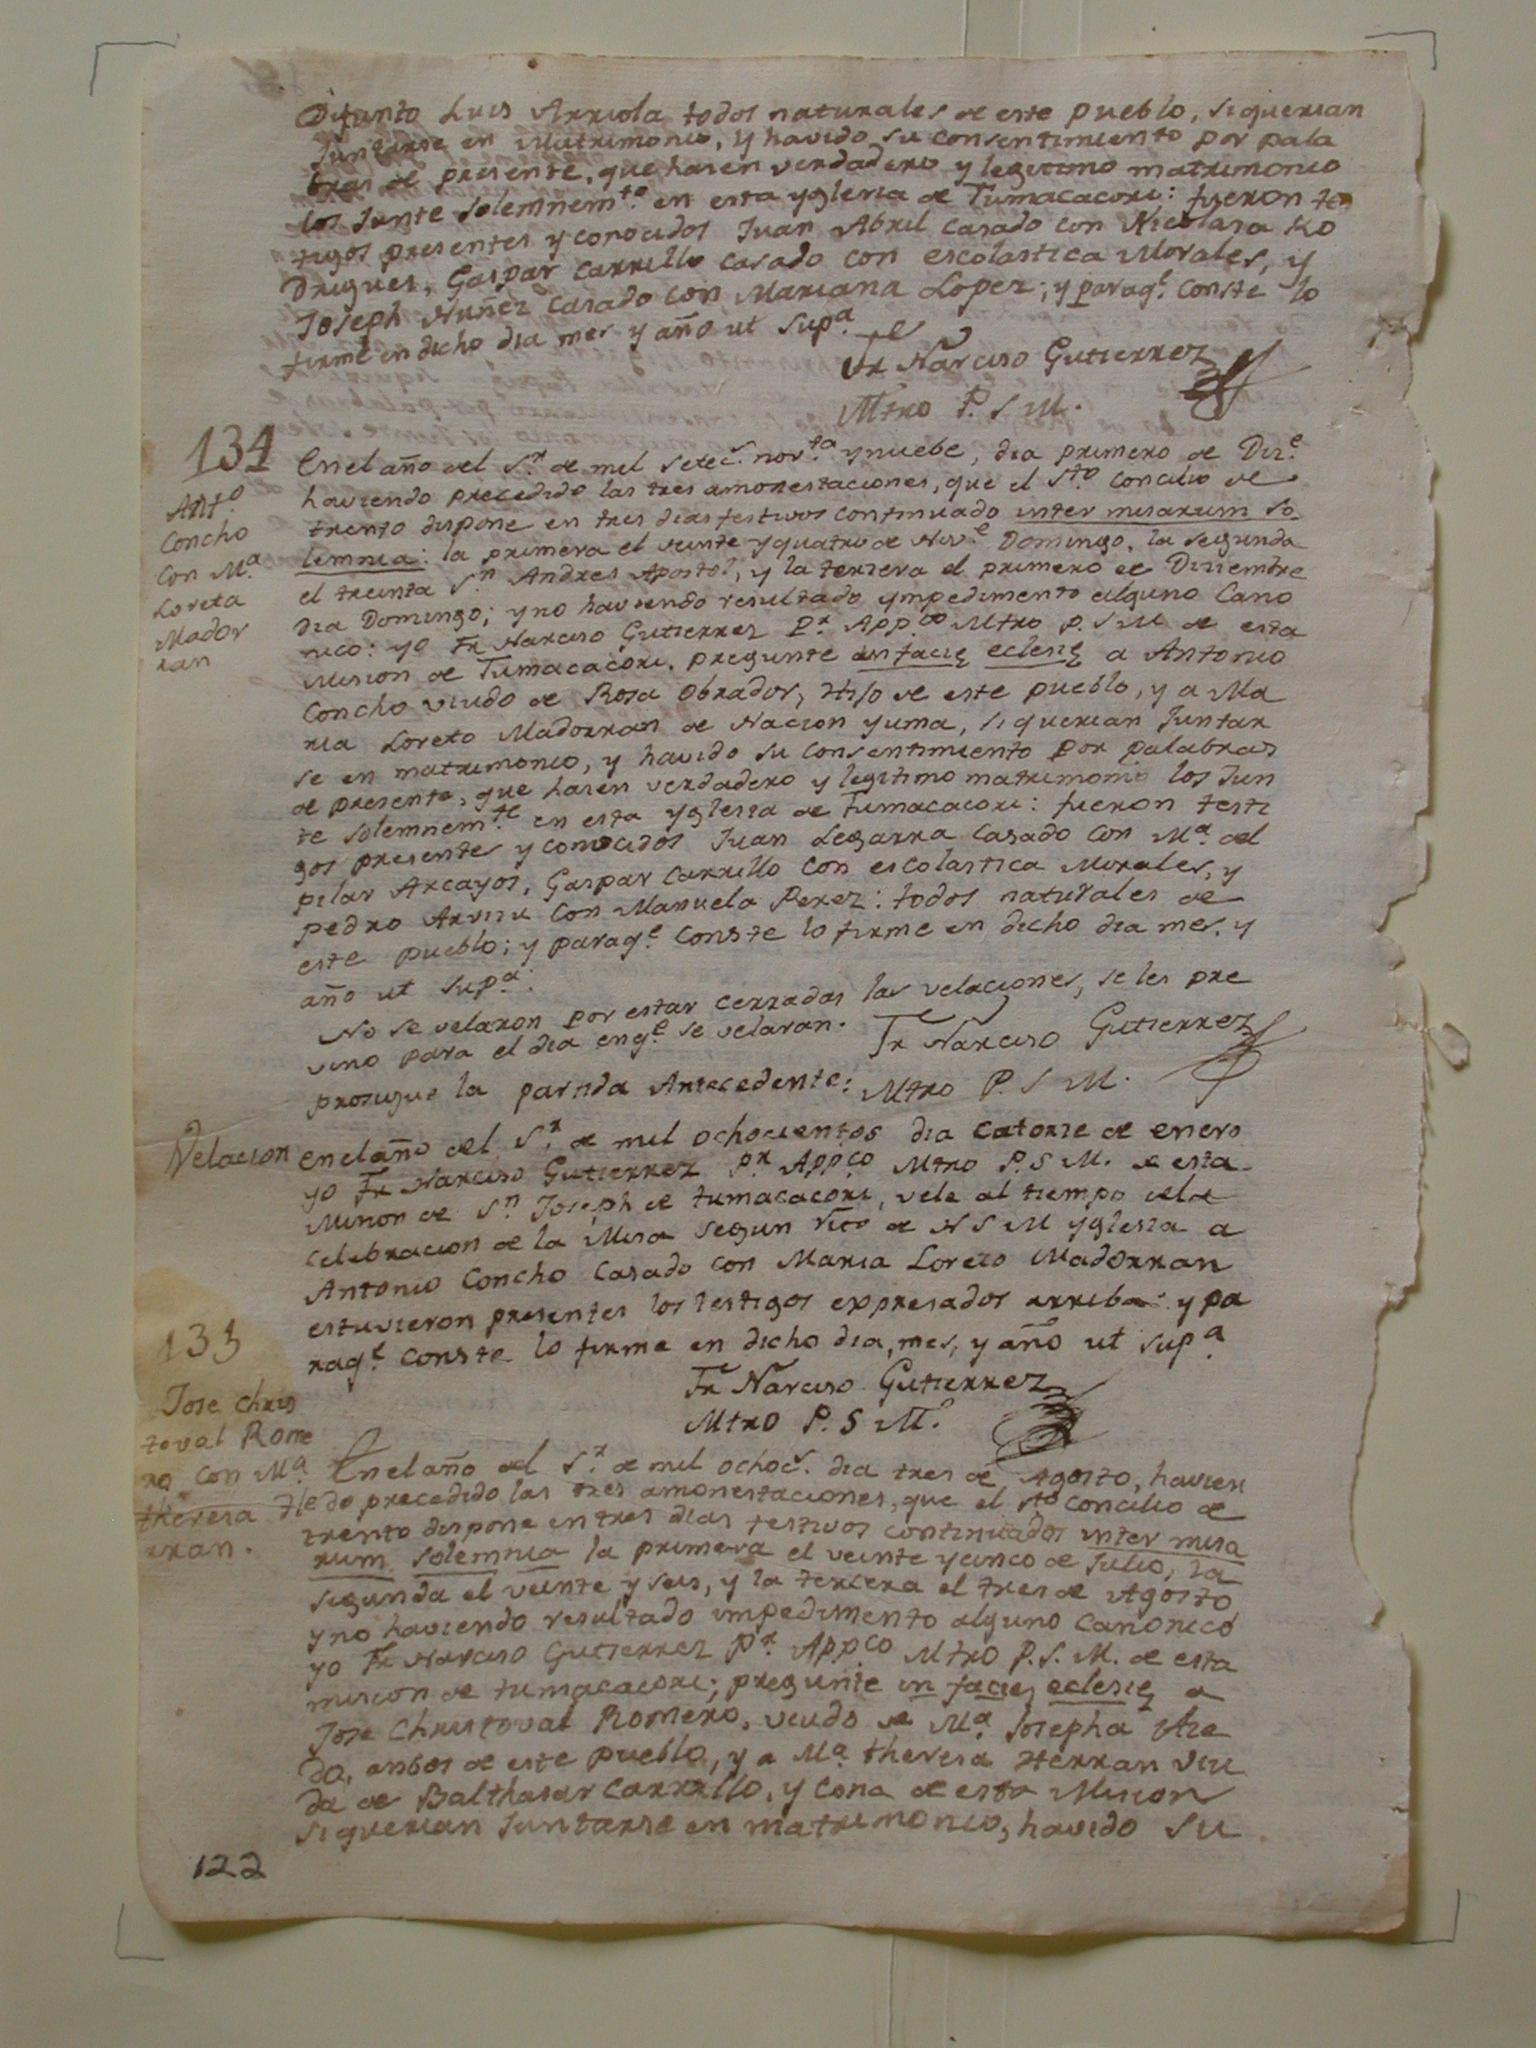 Difunto Luis Arriola todos naturales de este pueblo, si querian
Juntarse en Matrimonio, y havido su consentimiento por pala
bras de presente, que hasen verdadero y legitimo matrimonio
los Junte Solemnem.te en esta yglesia de Tumacacori: fueron tes
tigos presentes y conocidos Juan Abril casado con Nicolasa Ro
driguez, Gaspar Carrillo casado con escolastica Morales, y
Joseph Nuñez casado con Mariana Lopez; y paraq.e conste lo
firmé en dicho dia mes y año ut sup.a
Fr Narciso Gutierrez
Mtro P. S M.
134
Ant.o
Concho
con M.a
Loreta
Mador
ran
En el año del S.r de mil setec.s nov.ta y nuebe, dia primero de Diz.e
haviendo precedido las tres amonestaciones, que el S.to Concilio de
trento dispone en tres dias festivos continuado inter misarum so
lemnia: la primera el veinte y quatro de Nov.e Domingo, la segunda
el treinta S.n Andres Apostol, y la tersera el primero de Diziembre
dia Domingo; y no haviendo resultado ympedimento alguno Cano
nico: yo Fr Narciso Gutierrez P.r App.co Mtro P. S M de esta
Mision de Tumacacori, pregunte in facie eclesie a Antonio
Concho viudo de Rosa Obrador, Hijo de este pueblo, y a Ma
ria Loreto Madorran de Nacion yuma, si querian Juntar
se en matrimonio, y havido su consentimiento por palabras
de presente, que hasen verdadero y legitimo matrimonio los Jun
te solemnem.te en esta yglesia de Tumacacori: fueron testi
gos presentes y conocidos Juan Legarra casado con M.a del
pilar Arcayos, Gaspar Carrillo con escolastica Morales, y
pedro Arvizu con Manuela Perez: todos naturales de
este pueblo; y paraq.e conste lo firme en dicho dia mes, y
año ut sup.a:
No se velaron por estar cerradas las velaciones, se les pre
vino para el dia enq.e se velaran.
Fr Narciso Gutierrez
prosigue la partida Antecedente:
Mtro P. S M.
Velacion
en el año del S.r de mil ochocientos dia catorze de enero
yo Fr Narciso Gutierrez P.r App.co Mtro P. S M. de esta
Mision de S.n Joseph de tumacacori, vele al tiempo dela
celebracion de la Misa segun rito de N S M yglesia a
Antonio Concho Casado con Maria Loreto Madorran
estuvieron presentes los testigos expresados arriba: y pa
raq.e conste lo firme en dicho dia, mes, y año ut sup.a
Fr Narciso Gutierrez
Mtro P. S M.
135
Jose Chris
toval Rome
ro con M.a
theresa He
rran.
En el año del S.r de mil ochoc.s dia tres de Agosto, havien
do precedido las tres amonestaciones, que el s.to concilio de
trento dispone en tres dias festivos continuados inter misa
rum solemnia la primera el veinte y cinco de Julio, la
segunda el veinte y seis, y la tercera el tres de Agosto
y no haviendo resultado impedimento alguno canonico
yo Fr Narciso Gutierrez P.r App.co Mtro P. S. M. de esta
mision de tumacacori; pregunte in facie eclesie a
Jose Christoval Romero, viudo de M.a Josepha Ure
da, anbos de este pueblo, y a M.a theresa Herran viu
da de Balthasar Carrillo, y cona de esta Mision
si querian Juntarse en matrimonio, havido su
122